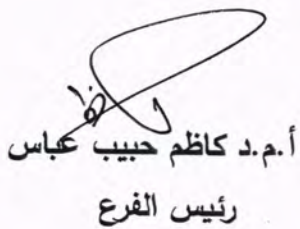 أ.م.د كاظم حبيب عباس
رئيس الفرع